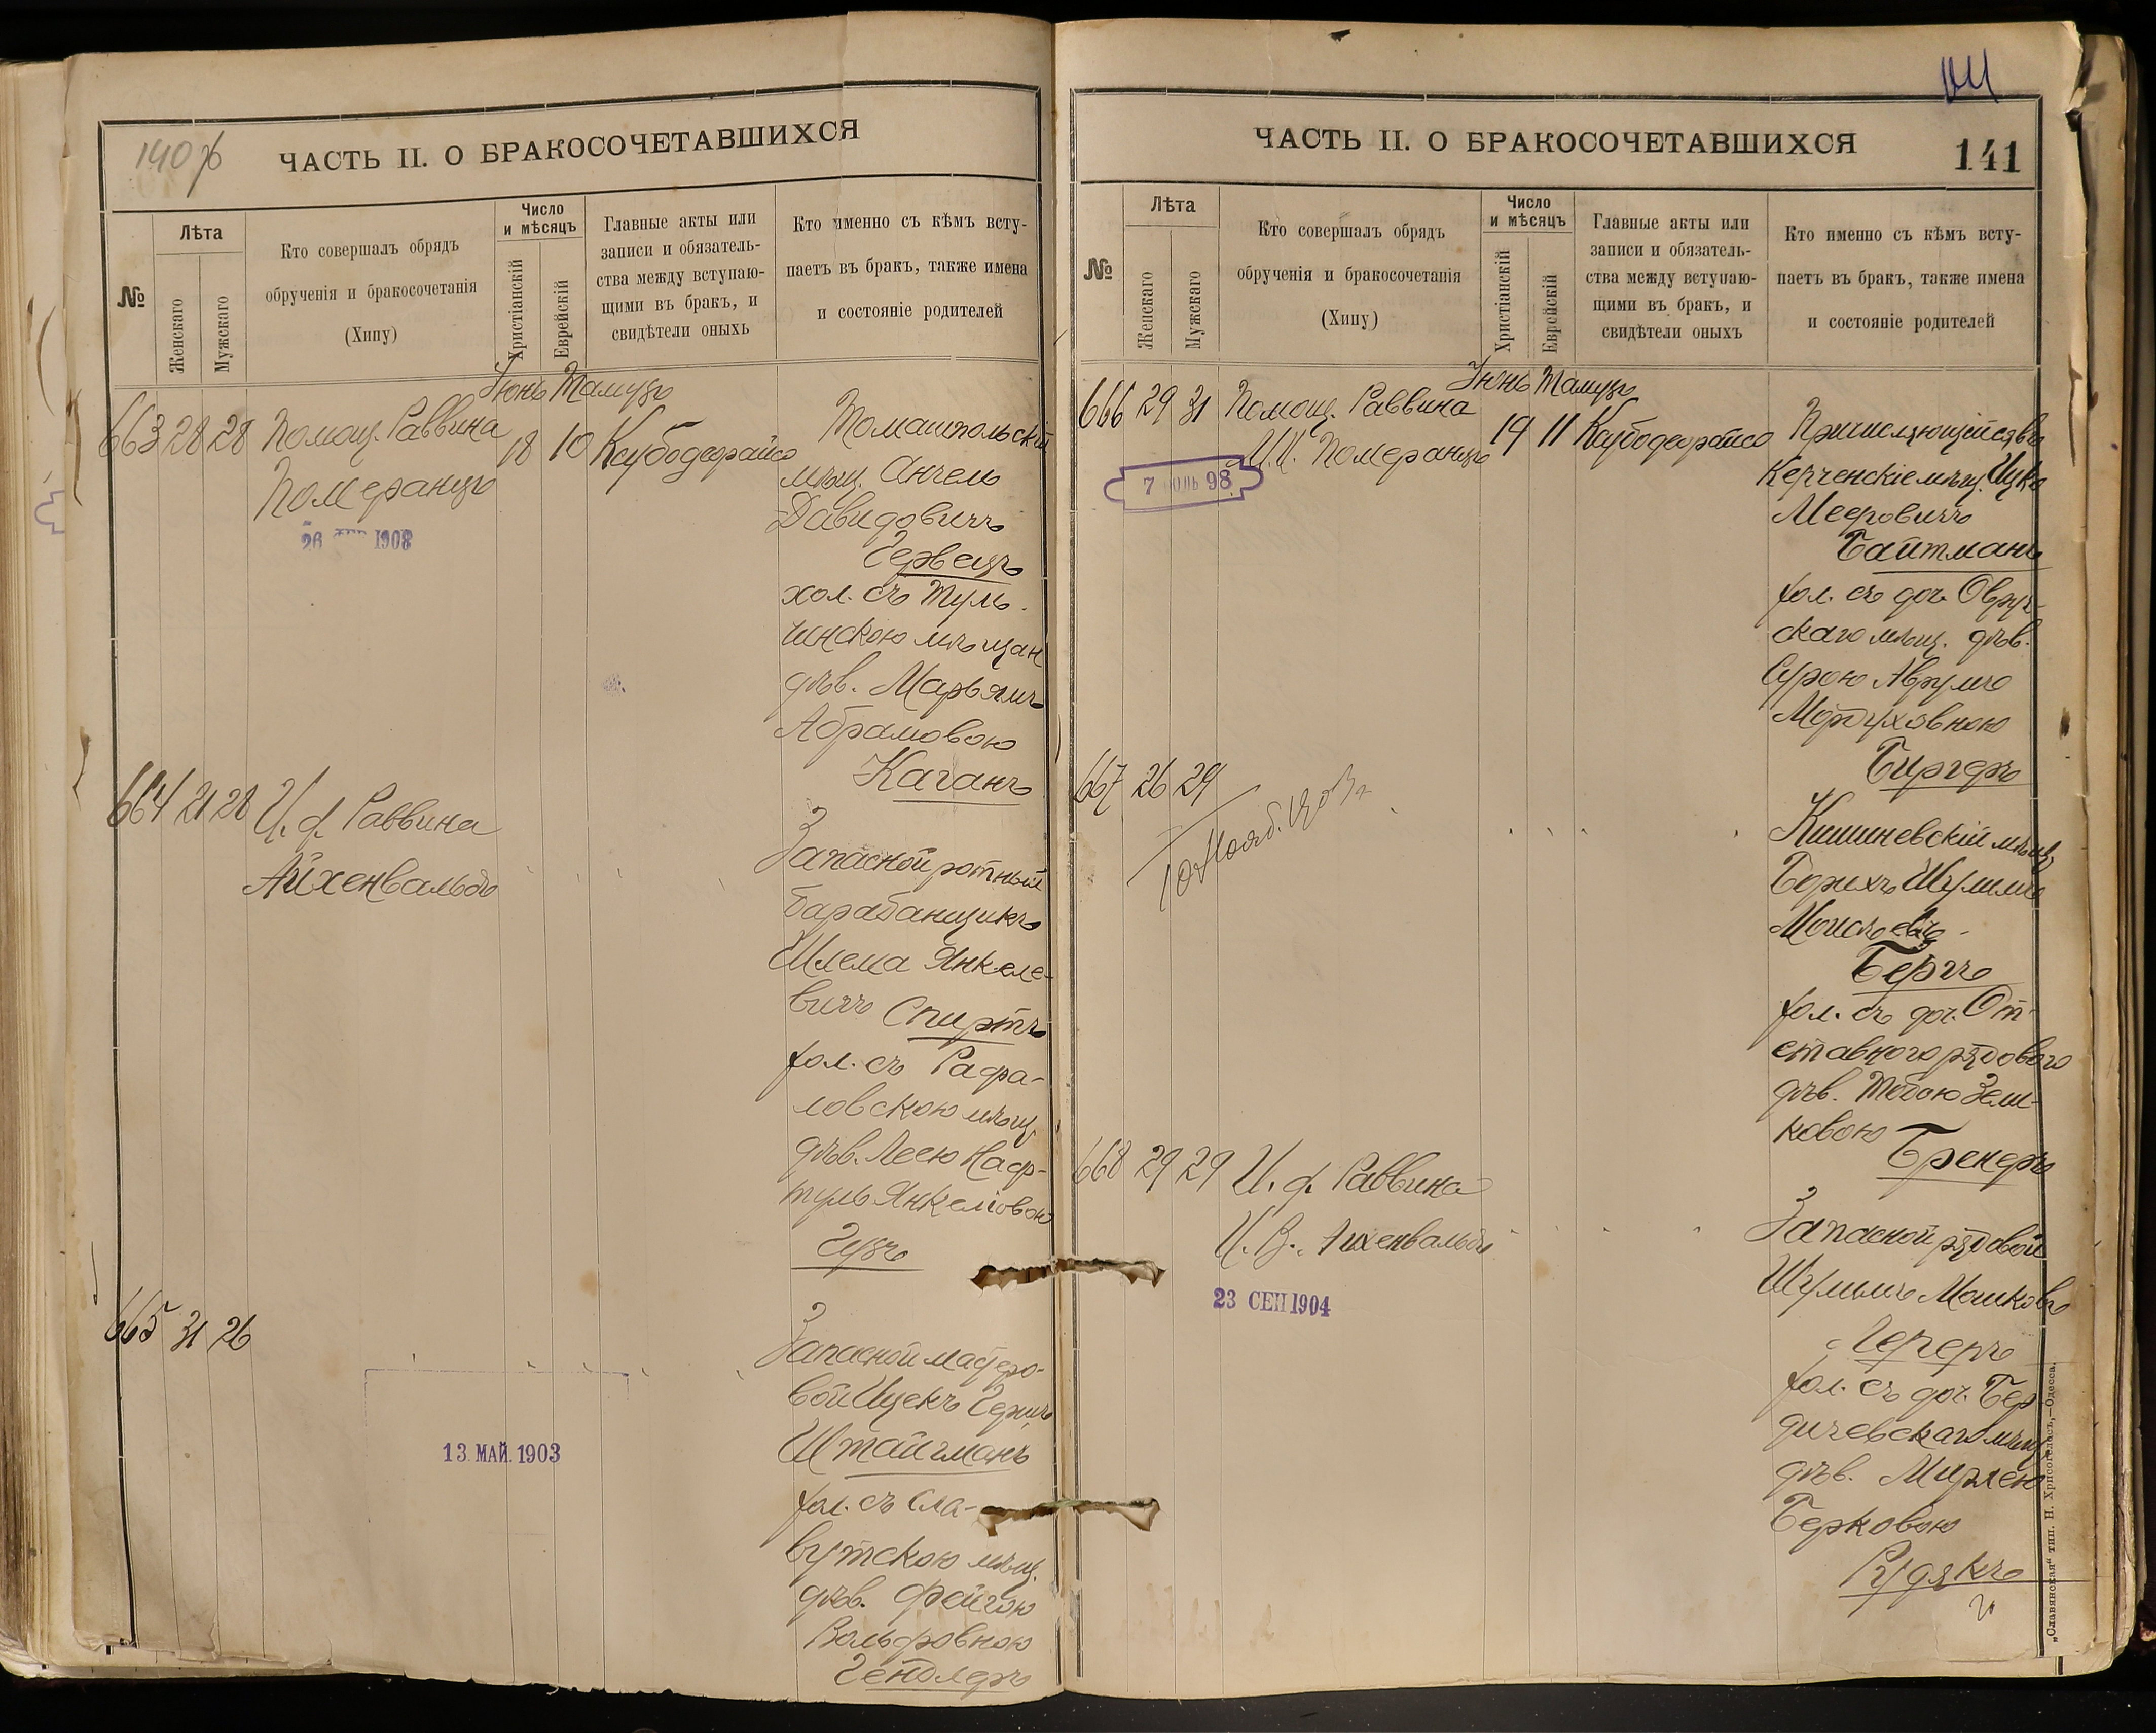 140 об
ЧАСТЬ II. О БРАКОСОЧЕТАВШИХСЯ
№
Лѣта
Женскаго
Мужскаго
Кто совершалъ обрядъ
обрученія и бракосочетанія
(Хипу)
Число
и мѣсяцъ
Христіанскій
Еврейскій
Главные акты или
записи и обязатель-
ства между вступаю-
щими въ бракъ, и
свидѣтели оныхъ
Кто именно съ кѣмъ всту-
паетъ въ бракъ, также имена
и состояніе родителей
Іюнь Тамузъ
663 28 28 Помощ. Раввина 18 10
Померанцъ
26 1908
Томашпольскій
мѣщ. Анчель
Давидовичъ
Червецъ
хол. съ Туль-
чинскою мѣщан
дѣв. Марьямъ
Абрамовою
Каганъ
664 21 28 И. д. Раввина
Айхенвальдъ
Запасной ротный
барабанщикъ
Шлема Янкеле-
вичъ Спиртъ
хол. съ Рафа-
ловскою мѣщ.
дѣв. Леею Наф-
туль Янкеліовою
Гузъ
665 31 26
13. МАЙ. 1903
Запасной мастеро-
вой Ицекъ Герш.
Штайгманъ
хол. съ Сла-
вутскою мѣщ.
дѣв. Фейгою
Вольфовною
Гендлеръ
ЧАСТЬ II. О БРАКОСОЧЕТАВШИХСЯ
141
№
Лѣта
Женскаго
Мужскаго
Кто совершалъ обрядъ
обрученія и бракосочетанія
(Хипу)
Число
и мѣсяцъ
Христіанскій
Еврейскій
Главные акты или
записи и обязатель-
ства между вступаю-
щими въ бракъ, и
свидѣтели оныхъ
Кто именно съ кѣмъ всту-
паетъ въ бракъ, также имена
и состояніе родителей
Іюнь Тамузъ
666 29 31 Помощ. Раввина 19 11
Померанцъ
7 98
Причисляющійся въ
Керченскіе мѣщ. Ицко
Мееровичъ
Байтманъ
хол. съ доч. Овруч-
скаго мѣщ. дѣв.
Сурою Аврумъ
Мордуховною
Биргеръ
667 26 29
10 Нояб. 1903 г
Кишиневскій мѣщ
Борихъ Шулимъ
Бергъ
хол. съ доч. От-
ставного рядового
дѣв. Тобою Зель-
ковою
Бренеръ
668 29 29 И. д. Раввина
Айхенвальдъ
23 СЕН 1904
Запасной рядовой
Шулимъ Мошковъ
хол. съ доч. Бер-
дичевскаго мѣщ
дѣв. Мирлею
Берковою
Рудякъ
„Славянская“ тип. Н. Хрисогелосъ,—Одесса.